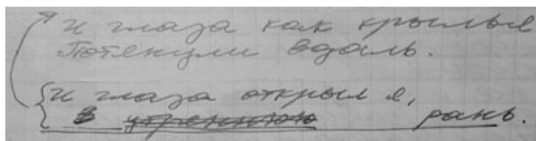 и глаза как крылья
Потянули вдаль.
И глаза открыл я,
в утреннюю рань.